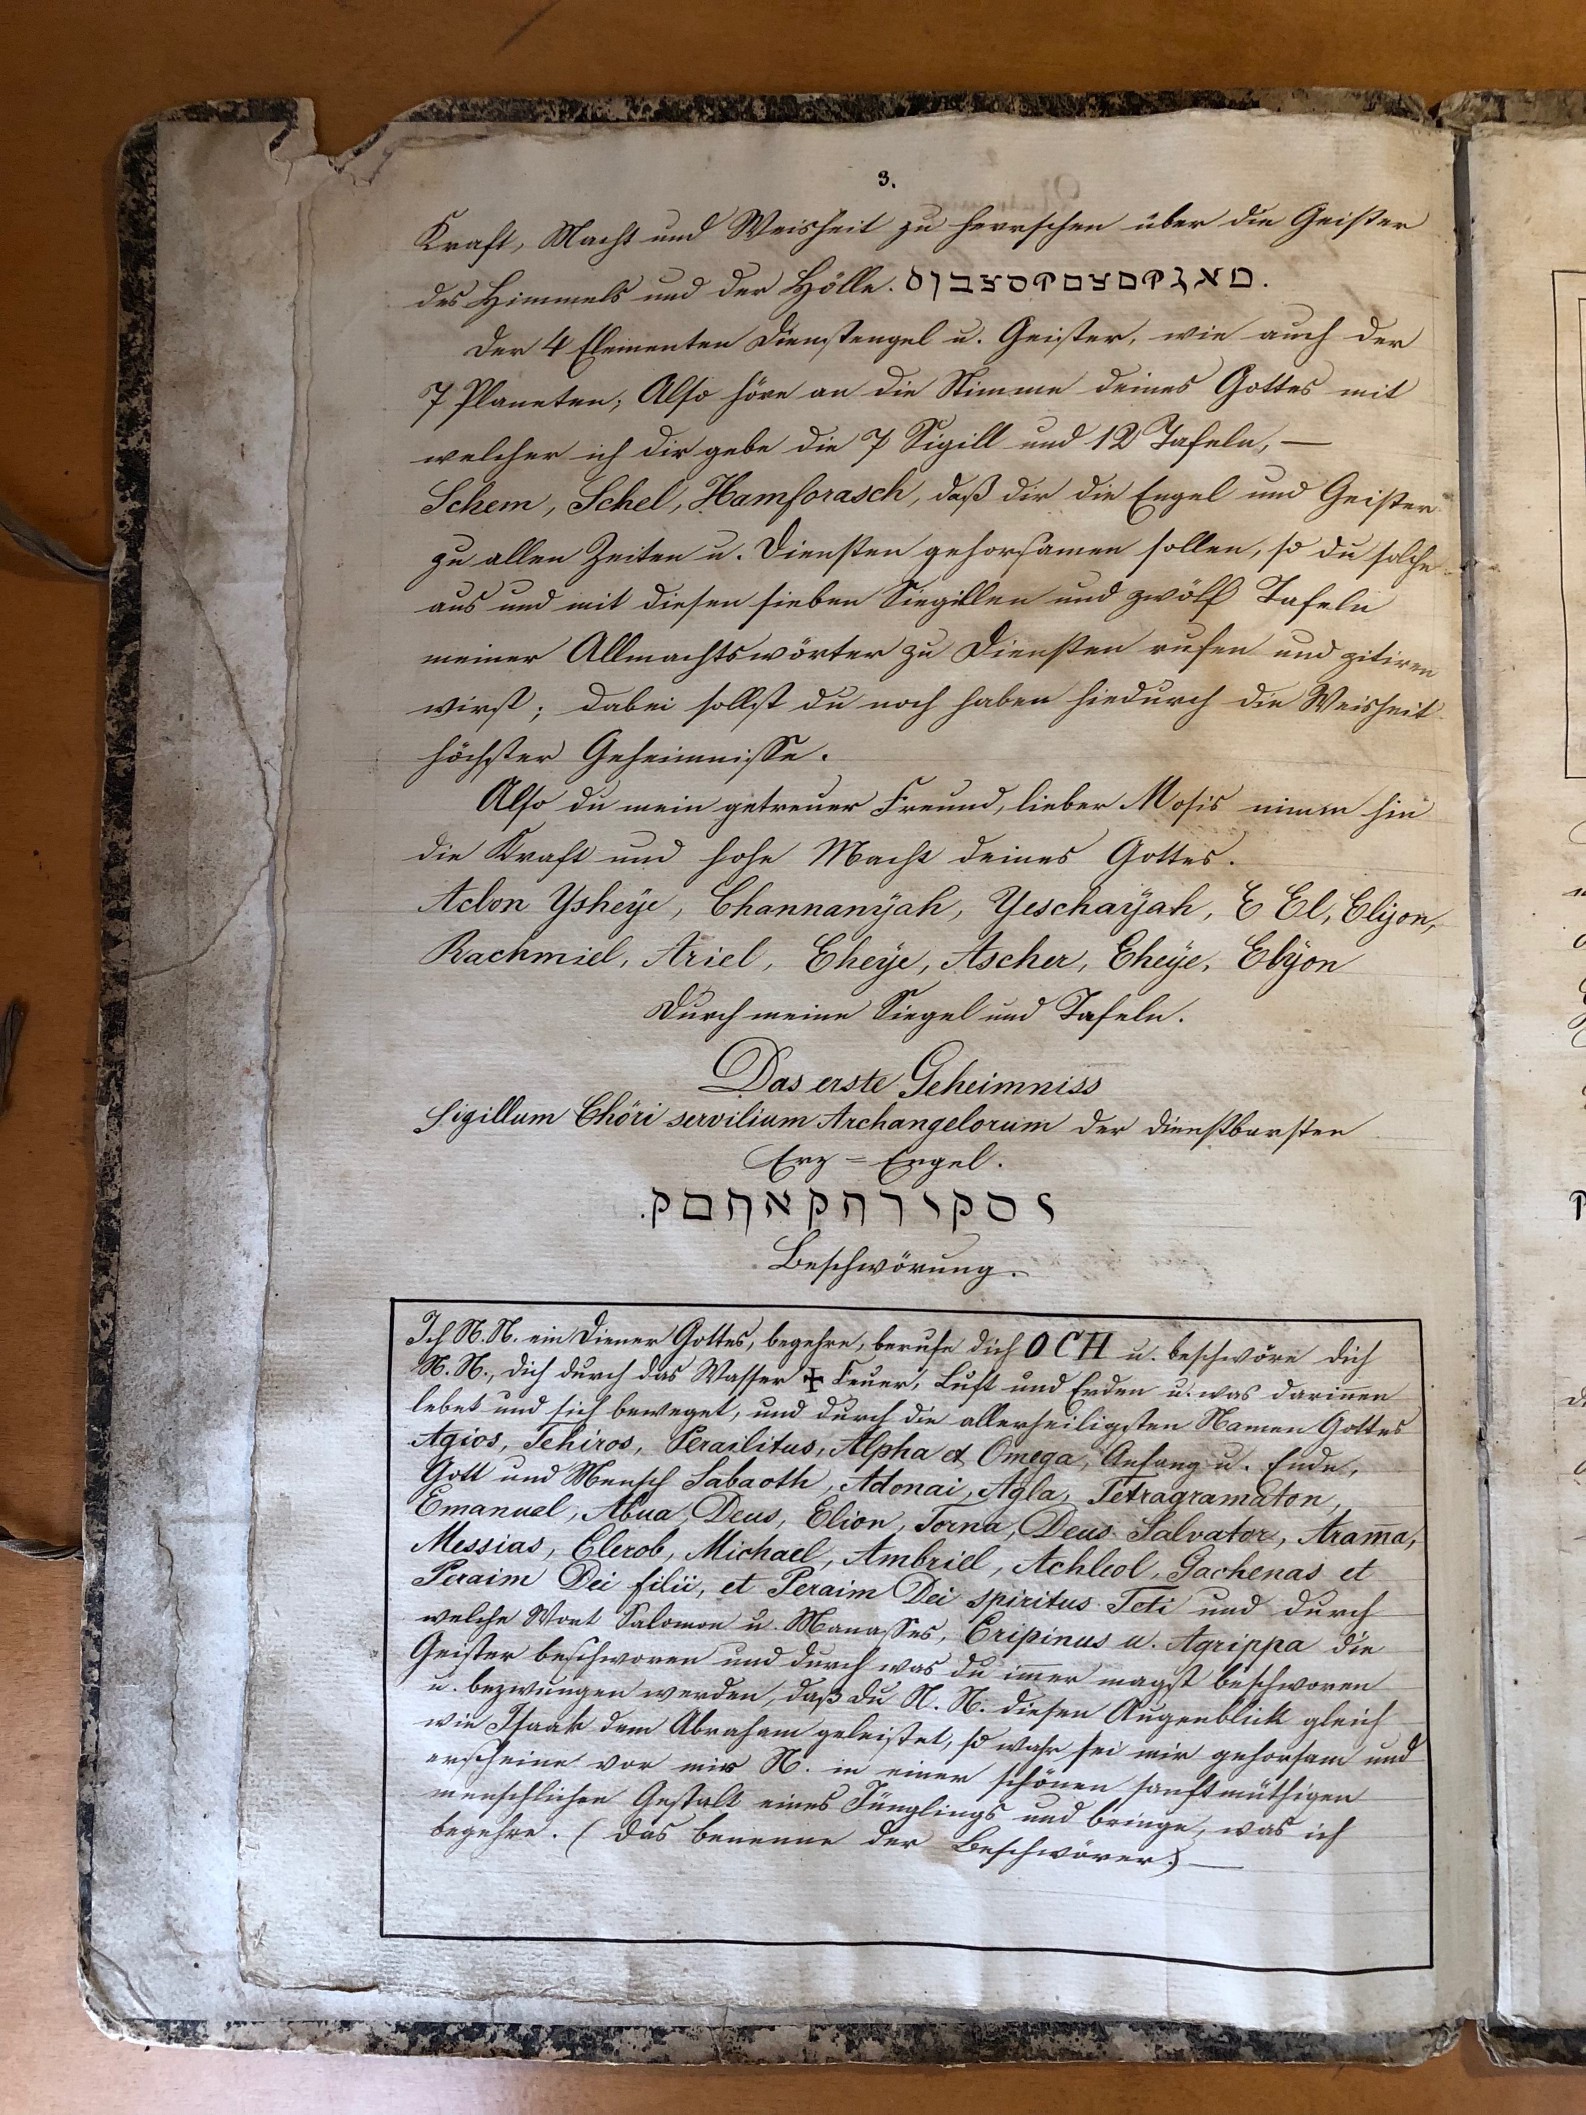 3.
Kraft, Macht und Weisheit zu herrschen über die Geister
des Himmels und der Hölle.
Der 4 Elementen Dienstengel u. Geister, wie auch der
7 Planeten; Also höre an die Stimme deines Gottes mit
welcher ich dir gebe die 7 Sigill und 12 Tafeln, —
Schem, Schel, Hamforasch, daß dir die Engel und Geister
zu allen Zeiten u. Diensten gehorsamen sollen, so du solche
aus und mit diesen sieben Siegillen und zwölf Tafeln
meiner Allmachtswörter zu Diensten rufen und zitiren
wirst; dabei sollst du noch haben hiedurch die Weisheit
höchster Geheimnisse.
Also du mein getreuer Freund, lieber Mosis nimm hin
die Kraft und hohe Macht deines Gottes.
Aclon Ysheÿe, Channanÿah, Yeschaÿah, E El, Elijon,
Rachmiel, Ariel, Eheÿe, Ascher, Eheÿe, Elÿon
Durch meine Siegel und Tafeln.
Das erste Geheimniss
Sigillum Chöri servilium Archangelorum der dienstbarsten
Erz=Engel.
Beschwörung.
Ich N.N. ein Diener Gottes, begehre, berufe dich OCH u. beschwöre dich
N.N., dich durch das Wasser ✠ Feuer, Luft und Erden u. was darinnen
lebet und sich beweget, und durch die allerheiligsten Namen Gottes
Agios, Tehiros, Perailitus, Alpha et Omega, Anfang u. Ende,
Gott und Mensch Sabaoth, Adonai, Agla, Tetragramaton,
Emanuel, Abua, Deus, Elion, Torna, Deus Salvator, Aram̄a,
Messias, Clerob, Michael, Ambriel, Achleol, Gachenas et
Peraim Dei filii, et Peraim Dei spiritus Teti und durch
welche Wort Salomon u. Manasses, Cripinus u. Agrippa die
Geister beschworen und durch was du im̄er magst beschworen
u. bezwungen werden, daß du N. N. diesen Augenblick gleich
wie Isaak dem Abraham geleistet, so wahr sei mir gehorsam und
erscheine vor mir N. in einer schönen sanftmüthigen
menschlichen Gestalt eines Jünglings und bringe, was ich
begehre. (Das benenne der Beschwörer.) —